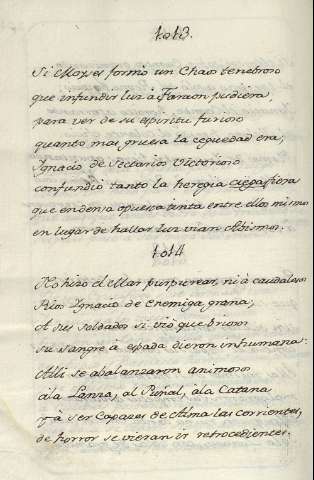 1013.
Si Moyses formó un Chaos tenebroso
que infundir luz à Faraon pudiera,
para ver de su espiritu furioso
quanto mas gruesa la ceguedad era;
Ignacio de Sectarios Victorioso
confundió tanto la heregia ciega fiera
que en densa opuesta tanta entre ellos mismos
en lugar de hallar luz vian Abismos.
1014
No hizo el Mar purpurear, ni à caudalosos
Rios Ignacio de Enemiga grana;
A sus soldados si vió que briosos
su sangre à espada dieron inhumana:
Alli se abalanzaron animosos
à la Lanza, al Puñal, à la Catana
y à ser Capazes de Alma las corrientes,
de horror se vieran ir retrocedientes.